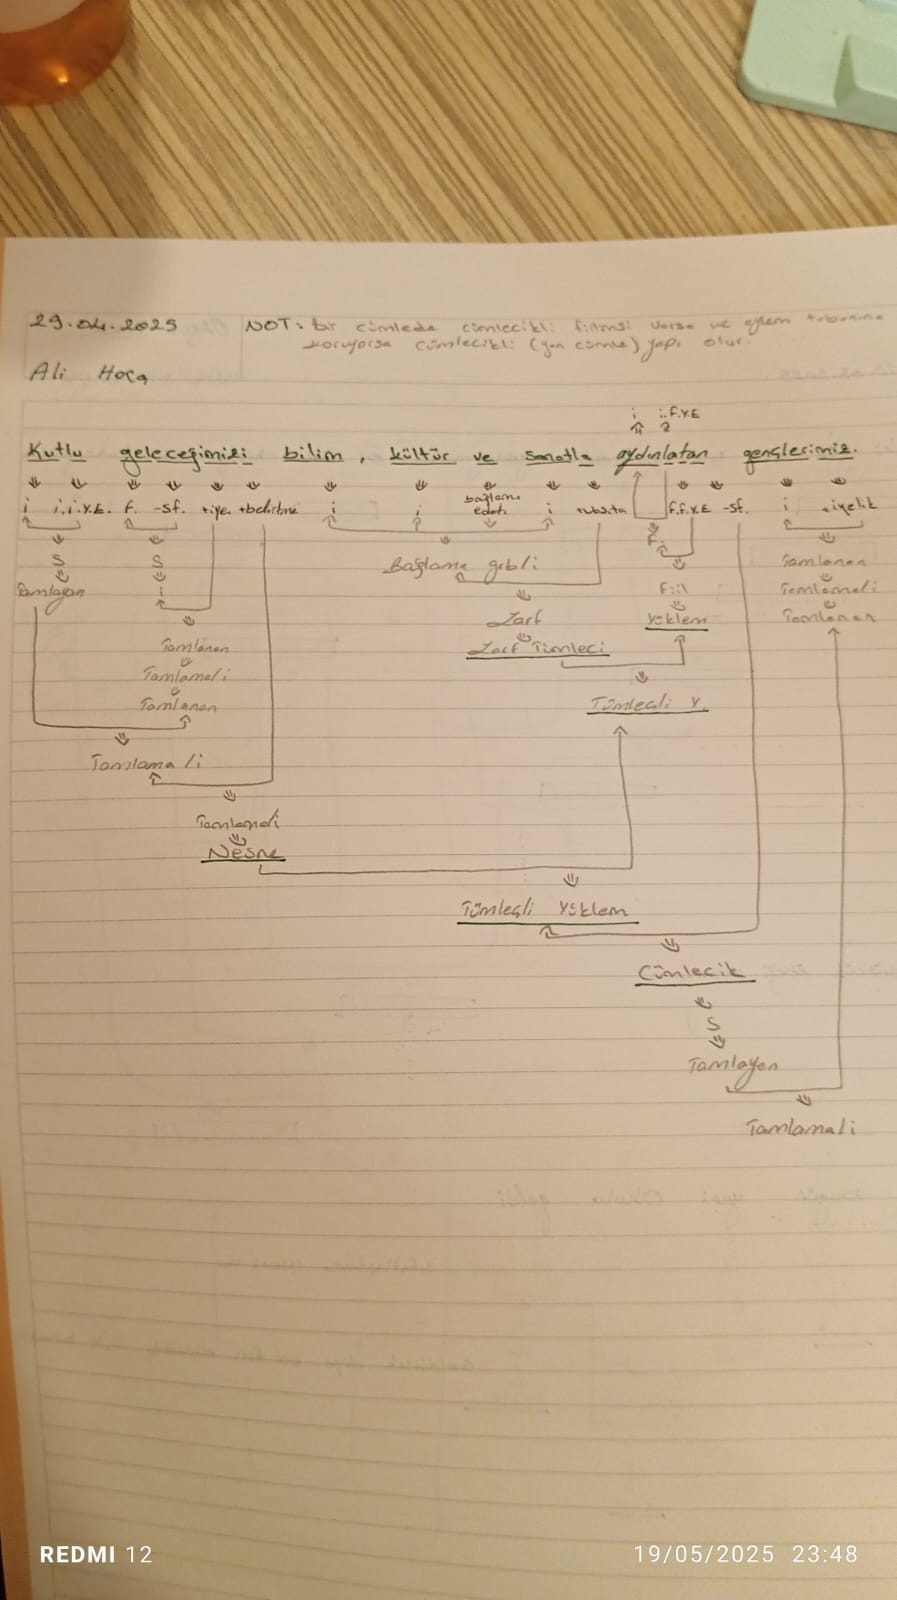 29.04.2025 NOT: bir cümlede cümlecikli fiilimsi varsa ve eylem tabanını
koruyorsa cümlecikli (yan cümle) yapı olur.
Ali Hoca
i i.f.Y.E
Kutlu geleceğimizi bilim, kültür ve sanatla aydınlatan gençlerimiz.
i i.i.Y.E. F. -sf. +iye. +belirtme i i bağlama edatı i +vasıta f.f.Y.E -sf. i +iyelik
S S Bağlama gebli F. Tamlanan
Tamlayan i Fiil Tamlamali
Zarf Yüklem Tamlanan
Tamlanan Zarf Tümleci
Tamlamali
Tamlanan Tümleçli Y.
Tamlamali
Tamlamali
Nesne
Tümleçli Yüklem
Cümlecik
S
Tamlayan
Tamlamali
REDMI 12 19/05/2025 23:48